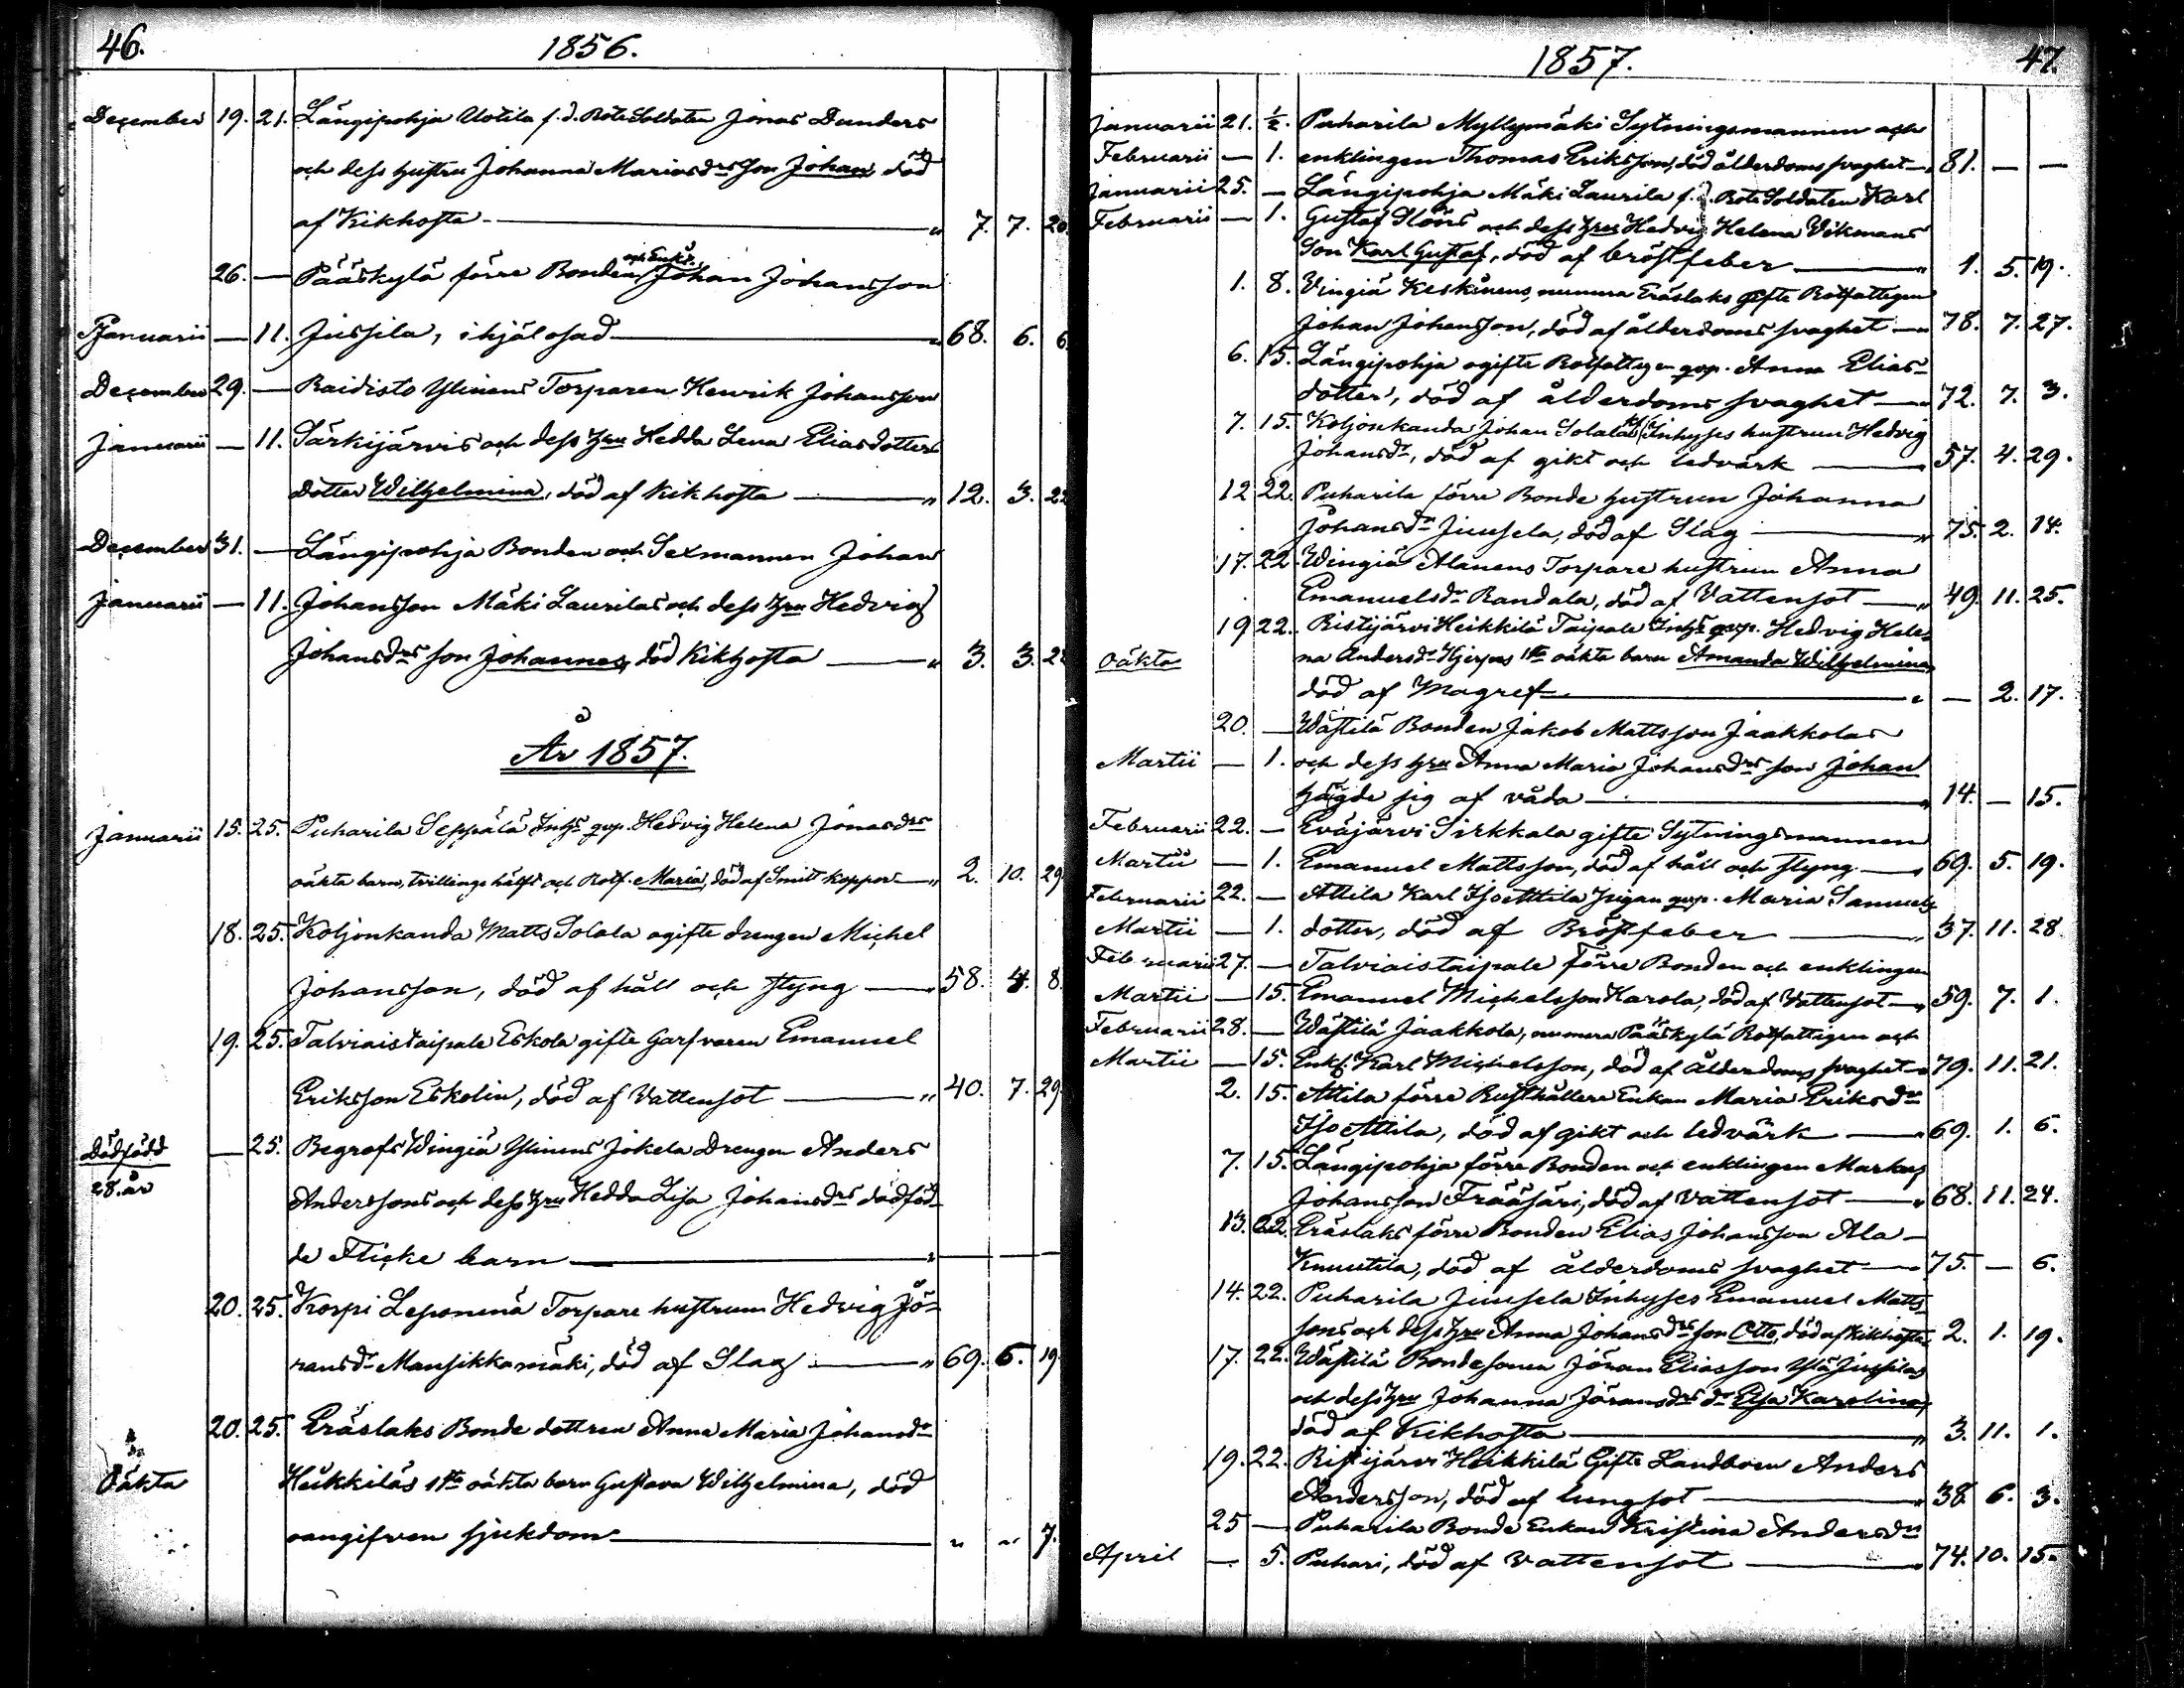 46.
1856.
December 19. 21. Längipohja Uotila f. d. Rote Soldaten Jonas Dunders
och dess hustru Johanna Mariasdrs Son Johan, död
af Kikhosta " 7. 7. 20.
26. — Pääskylä förre Bonden och Enkl. Johan Johansson
Januarii — 11. Jussila, ihjälosad " 68. 6. 6.
December 29. — Raidisto Ylinens Torparen Henrik Johansson
Januarii — 11. Särkijärvis och dess hru Hedda Lena Eliasdotters
dotter Wilhelmina, död af Kikhosta " 12. 3. 22
December 31. — Längipohja Bonden och Sexmannen Johan
Januarii — 11. Johansson Mäki Laurilas och dess hru Hedvig
Johansdrs son Johannes, död Kikhosta " 3. 3. 22
År 1857.
Januarii 15. 25. Puharila Seppälä Inhs qvp. Hedvig Helena Jonasdrs
oäkta barn, tvillings hälft och Rotf. Maria, död af Smitt koppor " 2. 10. 29
18. 25. Koljonkanda Matts Solala ogifte drengen Michel
Johansson, död af håll och styng " 58. 4. 8.
19. 25. Talviaistaipale Eskola gifte Garfvaren Emanuel
Eriksson Eskolin, död af Vattensot " 40. 7. 29
Dödfödd — 25. Begrofs Wingiä Ylinens Jokela Drengen Anders
28. år Anderssons och dess hru Hedda Lisa Johansdrs dödföd-
de Flicke barn " — — —
20. 25. Korpi Leponenä Torpare hustrun Hedvig Jö-
ransdr Mansikkamäki, död af Slag " 69. 6. 19
20. 25. Eräslaks Bonde dottren Anna Maria Johansdr
Oäkta Heikkiläs 1sta oäkta barn Gustava Wilhelmina, död
oangifven sjukdom " " 7.
1857.
47.
Januarii 21. ½. Puharila Myllymäki Sytningsmannen och
Februarii — 1. enklingen Thomas Eriksson, död ålderdoms svaghet " 81. — —
Januarii 25. — Längipohja Mäki Laurila f. d. Rote Soldaten Karl
Februarii — 1. Gustaf Slöörs och dess hrus Hedvig Helena Vikmans
Son Karl Gustaf, död af bröstfeber " 1. 5. 19.
1. 8. Vingiä Keskinens, numera Eräslaks gifte Rotfattigen
Johan Johansson, död af ålderdoms svaghet " 78. 7. 27.
6. 15. Längipohja ogifte Rotfattigen qvp. Anna Elias-
dotter, död af ålderdoms svaghet " 72. 7. 3.
7. 15. Koljonkanda Johan Solala Inhyses hustrun Hedvig
Johansdr, död af gikt och ledvärk " 57. 4. 29.
12 22. Puharila förre Bonde hustrun Johanna
Johansdr Juusela, död af Slag " 75. 2. 14.
17. 22. Wingiä Alanens Torpare hustrun Anna
Emanuelsdr Randala, död af Vattensot " 49. 11. 25.
19 22. Ristijärvi Heikkilä Taipale Inhs qvp. Hedvig Hele-
oäkta na Andersdr Hjerpes 1sta oäkta barn Amanda Wilhelmina
död af Magref " — 2. 17.
20. — Wästilä Bonden Jakob Mattsson Jaakkolas
Martii — 1. och dess hru Anna Maria Johansdrs son Johan
högde sig af våda " 14. — 15.
Februarii 22. — Eväjärvi Sirkkala gifte Sytningsmannen
Martii — 1. Emanuel Mattsson, död af håll och styng " 69. 5. 19.
Februarii 22. — Attila Karl Iso Attila pigan qvp. Maria Samuels
Martii — 1. dotter, död af Bröstfeber " 37. 11. 28.
Februarii 27. — Talviaistaipale förre Bonden och enklingen
Martii — 15. Emanuel Michelsson Karola, död af Vattensot " 59. 7. 1.
Februarii 28. — Wästilä Jaakkola, numera Pääskylä Rotfattigen och
Martii — 15. Enkl. Karl Michelsson, död af ålderdoms svaghet " 79. 11. 21.
2. 15. Attila förre Rusthållere Enkan Maria Eriksdr
Iso Attila, död af gikt och ledvärk " 69. 1. 6.
7. 15. Längipohja förre Bonden och enklingen Markus
Johansson Frääsäri, död af Vattensot " 68. 11. 24.
13. 22. Eräslaks förre Bonden Elias Johansson Ala-
Knuutila, död af ålderdoms svaghet " 75. — 6.
14. 22. Puharila Juusela Inhyses Emanuel Matts-
sons och dess hru Anna Johansdrs son Otto, död af Kikhosta 2. 1. 19.
17. 22. Wästilä Bondesonen Jöran Eliasson Ylä Jussilas
och dess hru Johanna Jöransdrs dr Elsa Karolina,
död af Kikhosta " 3. 11. 1.
19. 22. Ristijärvi Heikkilä Gifte Landboen Anders
Andersson, död af lungsot " 38. 6. 3.
25 — Puharila Bonde Enkan Kristina Andersdr
April — 5. Puhari, död af Vattensot " 74. 10. 15.